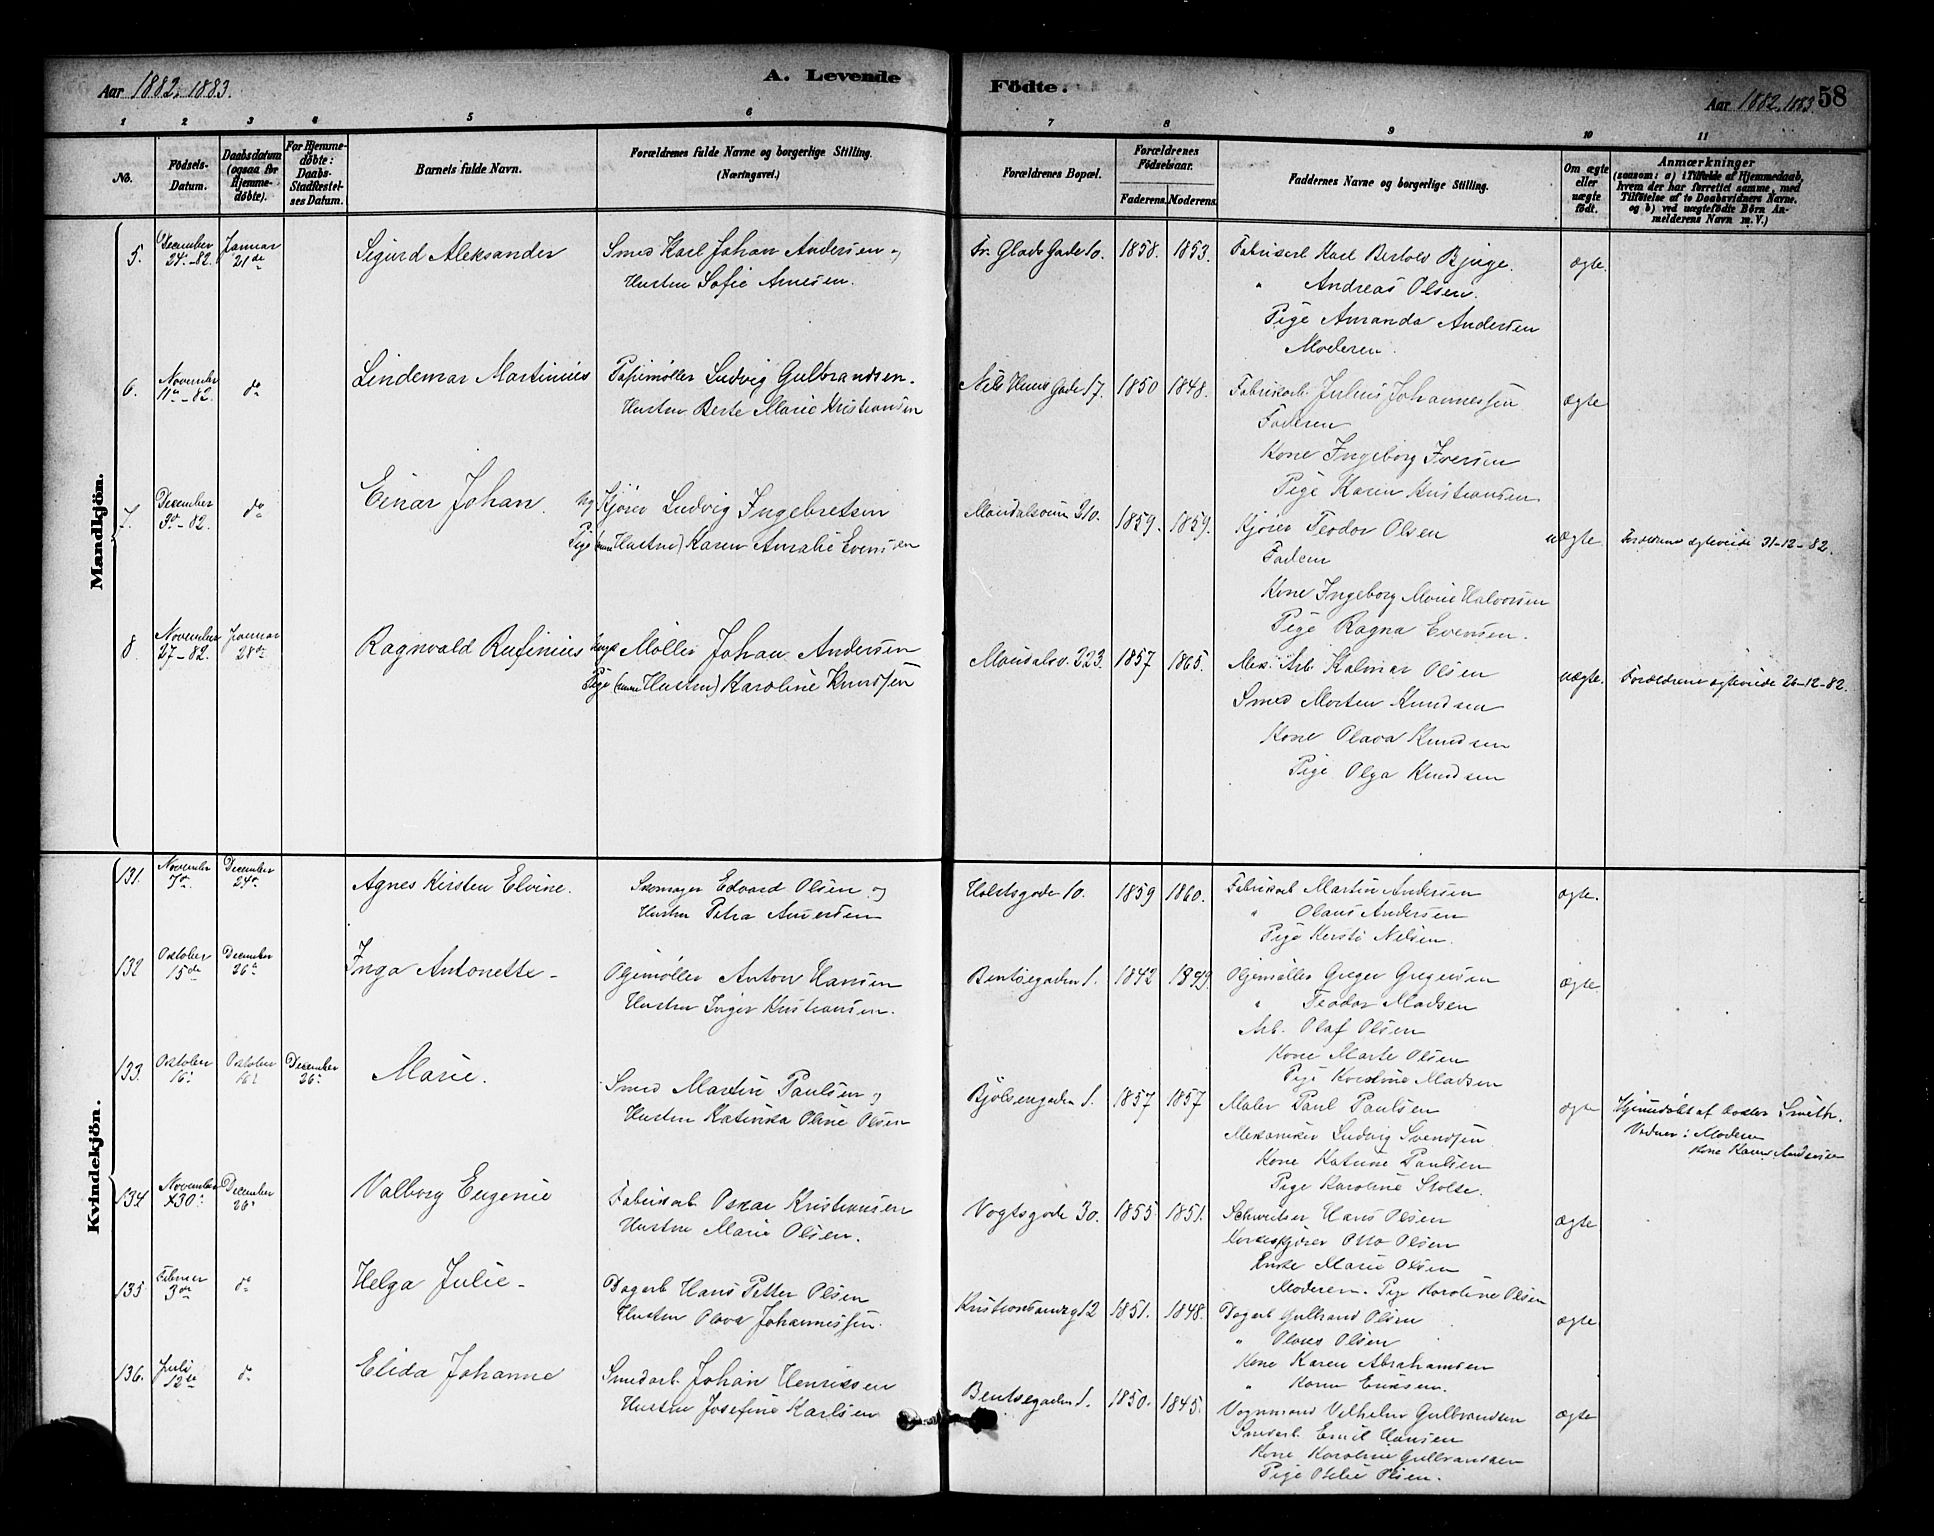 Aar 1882. 1883.
A. Levende
Födte.
Aar 1882, 1883
58
1 2 3 4 5 6 7 8 9 10 11
No.
Födsels-Datum.
Daabsdatum (ogsaa for Hjemme-döbte).
For Hjemme-döbte: Daabs-Stadfæstel-ses Datum.
Barnets fulde Navn.
Forældrenes fulde Navne og borgerlige Stilling. (Næringsvei.)
Forældrenes Bopæl.
Forældrenes Födselsaar.
Faderens. Moderens.
Faddernes Navne og borgerlige Stilling.
Om ægte eller uægte födt.
Anmærkninger
(saasom: a) i Tilfælde af Hjemmedaab, hvem der har forrettet samme, med Tilföielse af to Daabsvidners Navne. og b) ved uægtefödte Börn An-melderens Navn m. V.)
Mandkjön.
5. December 24.-82. Januar 21de Sigurd Aleksander Smed Karl Johan Andersen og Fr. Glads Gade 10. 1858. 1853. Fabrikarb Karl Bertolv Ægte.
Hustru Sofie Arnesen. " Andreas Olsen.
Pige Amanda Andersen
Moderen.
6. November 11te-82. do Lindemar Martinius Papirmøller Ludvig Gulbrandsen. Nils Huus Gade 17. 1850 1848. Fabrikarb. Julius Johannessen Ægte
Hustru Berte Marie Kristiansen Faderen
Kone Ingeborg Iversen
Pige Karen Kristiansen
7. December 3de-82. do Einar Johan. Kjører Ludvig Ingebretsen Maridalsvein 210. 1859. 1859. Kjører Teodor Olsen uægte Forældrene ægteviede 31-12-82.
Pige (nu Hustru) Karen Amalie Evensen Faderen
Kone Ingeborg Marie Halvorsen
Pige Ragna Evensen.
8. November 27-82. Januar 28de Ragnvald Rufinius Møller Johan Andersen Maridalsv. 223. 1857 1865. Mek. Arb. Kalmar Olsen uægte. Forældrene ægteviede 26-12-82.
Pige (nu Hustru) Karoline Knudsen Smed Morten Knudsen
Kone Olava Knudsen
Pige Olga Knudsen
Kvindekjön.
131. November 7de. December 24de Agnes Kirsten Elvine. Skomager Edvard Olsen og Holstsgade 10. 1859 1860. Fabrikarb Martin Andersen Ægte.
Hustru Petra Amundsen " Olaus Andersen
Pige Kersti Nelsen.
132 October 15de December 26de Inga Antonette- Oljemøller Anton Hansen Bentsegaden 1. 1842 1849. Oljemøller Greger Gregersen Ægte.
Hustru Inger Kristiansen. " Teodor Madsen
Arb. Olaf Olsen
Kone Marte Olsen
Pige Kristine Madsen
133. October 16. October 16. December 26. Marie. Smed Martin Paulsen og Bjølsengaden 1. 1857 1857 Maler Paul Paulsen Ægte Hjemmedøbt af Doktor Smith.
Hustru Katinka Oline Olsen Mekaniker Ludvig Svendsen Vidner: Moderen
Kone Katrine Paulsen Kone Karen Andersen
Pige Karoline Stolte.
134 November 30. December 26. Valborg Eugenie Fabrikarb. Oskar Kristiansen Vogtsgade 30. 1855 1851. Schweitser Hans Olsen Ægte
Hustru Marie Olsen. Otto Olsen
Enke Marie Olsen
Moderen. Pige Karoline Olsen
135 Februar 3de do Helga Julie- Dagarb Hans Petter Olsen 12 1851. 1848. Dagarb Gulbrand Olsen Ægte
Hustru Olava Johannessen. " Olaus Olsen
Kone Karen Abrahamsen
" Karen Eriksen.
136. Juli 12te do Elida Johanne Smedarb. Johan Henriksen Bentsegaden 1. 1850. 1845. Vognmand Vilhelm Gulbrandsen Ægte
Hustru Josefine Karlsen Smedarb. Emil Hansen
Kone Karoline Gulbrandsen
Pige Otilie Olsen.